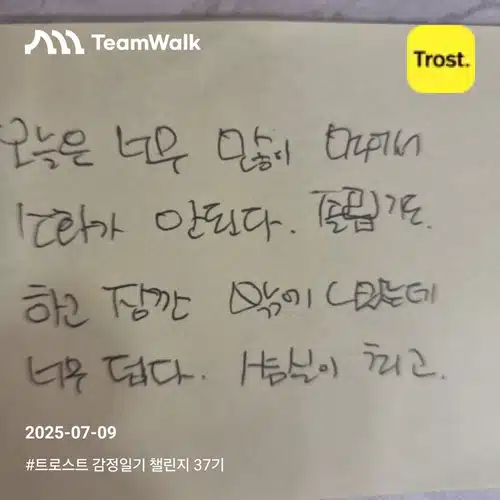 TeamWalk
Trost.
오늘은 너무 많이 먹어서
소화가 안된다. 졸립기도
하고 잠깐 밖에 나갔는데
너무 덥다. 사무실이 최고.
2025-07-09
#트로스트 감정일기 챌린지 37기